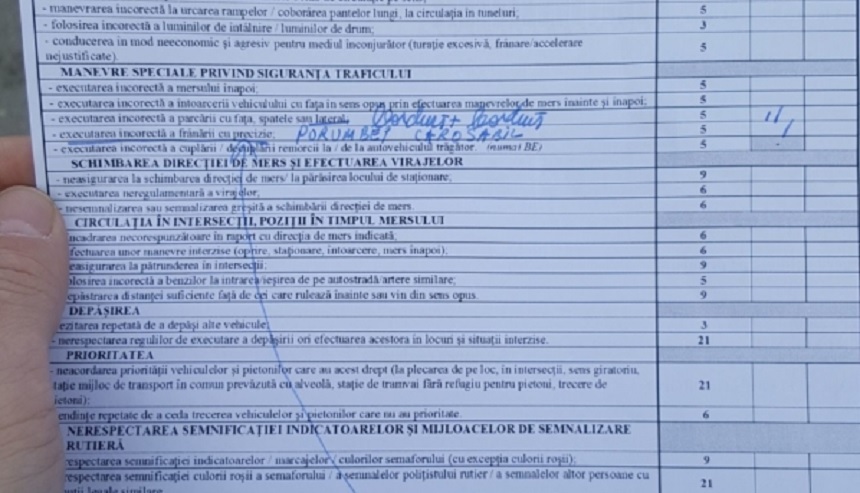 - manevrarea incorectă la urcarea rampelor / coborârea pantelor lungi, la circulația în tuneluri; 5
- folosirea incorectă a luminilor de întâlnire / luminilor de drum; 3
- conducerea în mod neeconomic și agresiv pentru mediul înconjurător (turație excesivă, frânare/accelerare 5
nejustificate).
MANEVRE SPECIALE PRIVIND SIGURANȚA TRAFICULUI
- executarea incorectă a mersului înapoi; 5
- executarea incorectă a întoarcerii vehiculului cu fața în sens opus prin efectuarea manevrelor de mers înainte și înapoi; 5
- executarea incorectă a parcării cu fața, spatele sau lateral. 5
- executarea incorectă a frânării cu precizie; PORUMBEI CAROSABIL 5
- executarea incorectă a cuplării / decuplării remorcii la / de la autovehiculul trăgător. (numai BE) 5
SCHIMBAREA DIRECȚIEI DE MERS ȘI EFECTUAREA VIRAJELOR
- neasigurarea la schimbarea direcției de mers/ la părăsirea locului de staționare; 9
- executarea neregulamentară a virajelor; 6
- nesemnalizarea sau semnalizarea greșită a schimbării direcției de mers. 6
CIRCULAȚIA ÎN INTERSECȚII, POZIȚII ÎN TIMPUL MERSULUI
ncadrarea necorespunzătoare în raport cu direcția de mers indicată; 6
fectuarea unor manevre interzise (oprire, staționare, întoarcere, mers înapoi); 6
easigurarea la pătrunderea în intersecții; 9
olosirea incorectă a benzilor la intrarea/ieșirea de pe autostradă/artere similare; 5
epăstrarea distanței suficiente față de cei care rulează înainte sau vin din sens opus. 9
DEPĂȘIREA
ezitarea repetată de a depăși alte vehicule; 3
- nerespectarea regulilor de executare a depășirii ori efectuarea acestora în locuri și situații interzise. 21
PRIORITATEA
- neacordarea priorității vehiculelor și pietonilor care au acest drept (la plecarea de pe loc, în intersecții, sens giratoriu,
tație mijloc de transport în comun prevăzută cu alveolă, stație de tramvai fără refugiu pentru pietoni, trecere de 21
ietoni);
endințe repetate de a ceda trecerea vehiculelor și pietonilor care nu au prioritate. 6
NERESPECTAREA SEMNIFICAȚIEI INDICATOARELOR ȘI MIJLOACELOR DE SEMNALIZARE
RUTIERĂ
respectarea semnificației indicatoarelor / marcajelor / culorilor semaforului (cu excepția culorii roșii); 9
espectarea semnificației culorii roșii a semaforului / a semnalelor polițistului rutier / a semnalelor altor persoane cu 21